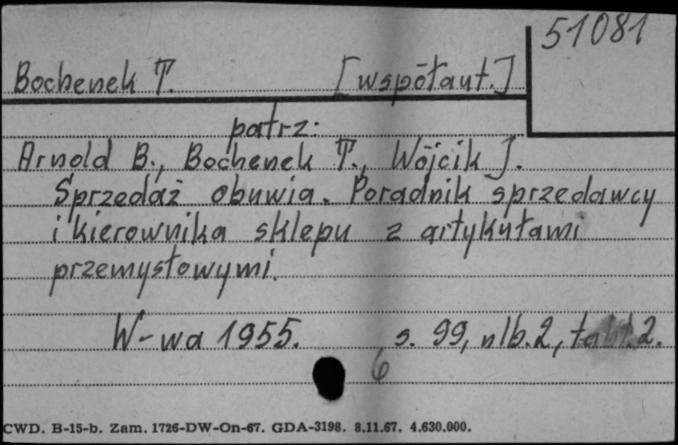 51081
Bochenek T. [współaut.]
patrz:
Arnold B., Bochenek T., Wójcik J.
Sprzedaż obuwia. Poradnik sprzedawcy
i kierownika sklepu z artykułami
przemysłowymi.
W-wa 1955. s. 99, nlb. 2, tabl. 2.
6
CWD. B-15-b. Zam. 1726-DW-On-67. GDA-3198. 8.11.67. 4.630.000.